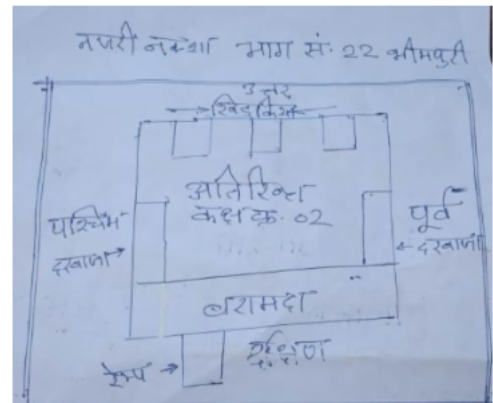 नजरी नक्शा भाग सं. 22 भीमपुरी
उत्तर
खिड़कियां
अतिरिक्त
कक्ष क्र. 02
पश्चिम
दरवाजा
पूर्व
दरवाजा
बरामदा
रैम्प
दक्षिण